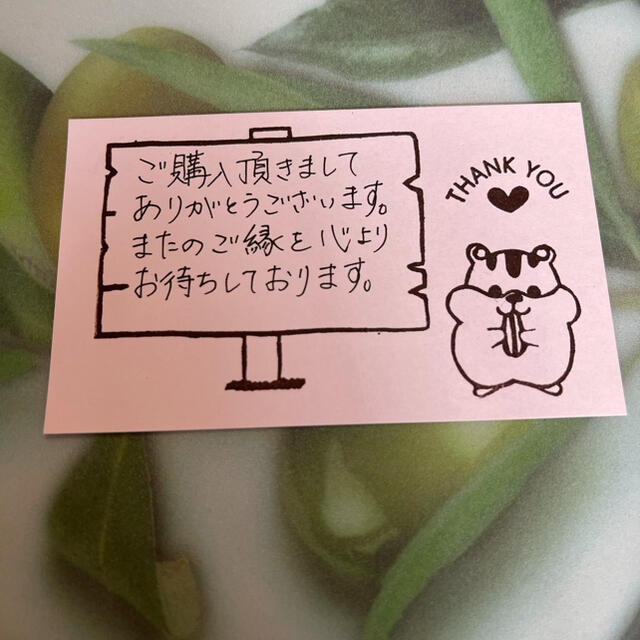 ご購入頂きまして
ありがとうございます。
またのご縁を心より
お待ちしております。
THANK YOU